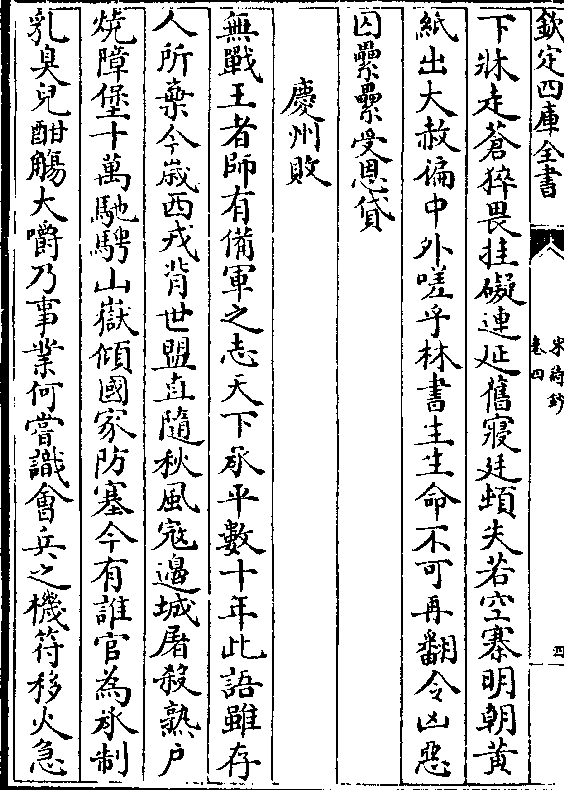 欽定四庫全書
宋詩鈔
卷四
四
下牀走蒼猝畏挂礙連延舊寢廷頓失若空寨明朝黄
紙出大赦徧中外嗟乎林書主生命不可再翻令凶惡
囚纍纍受恩貸
慶州敗
無戰王者師有備軍之志天下承平數十年此語雖存
人所棄今嵗西戎背世盟直隨秋風宼邊城屠殺熟户
燒障堡十萬馳騁山嶽傾國家防塞今有誰官為承制
乳臭兒酣觴大嚼乃事業何嘗識會兵之機符移火急